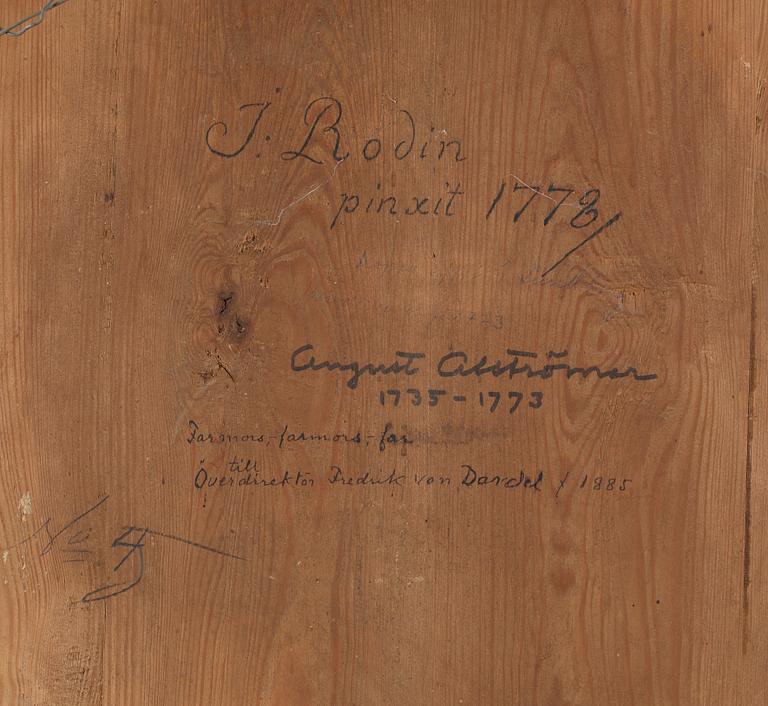 J. Rodin
pinxit 1778/
August Alströmer
1735-1773
Farmors,-farmors,-far
till
Överdirektör Fredrik von Dardel f 1885
No 4